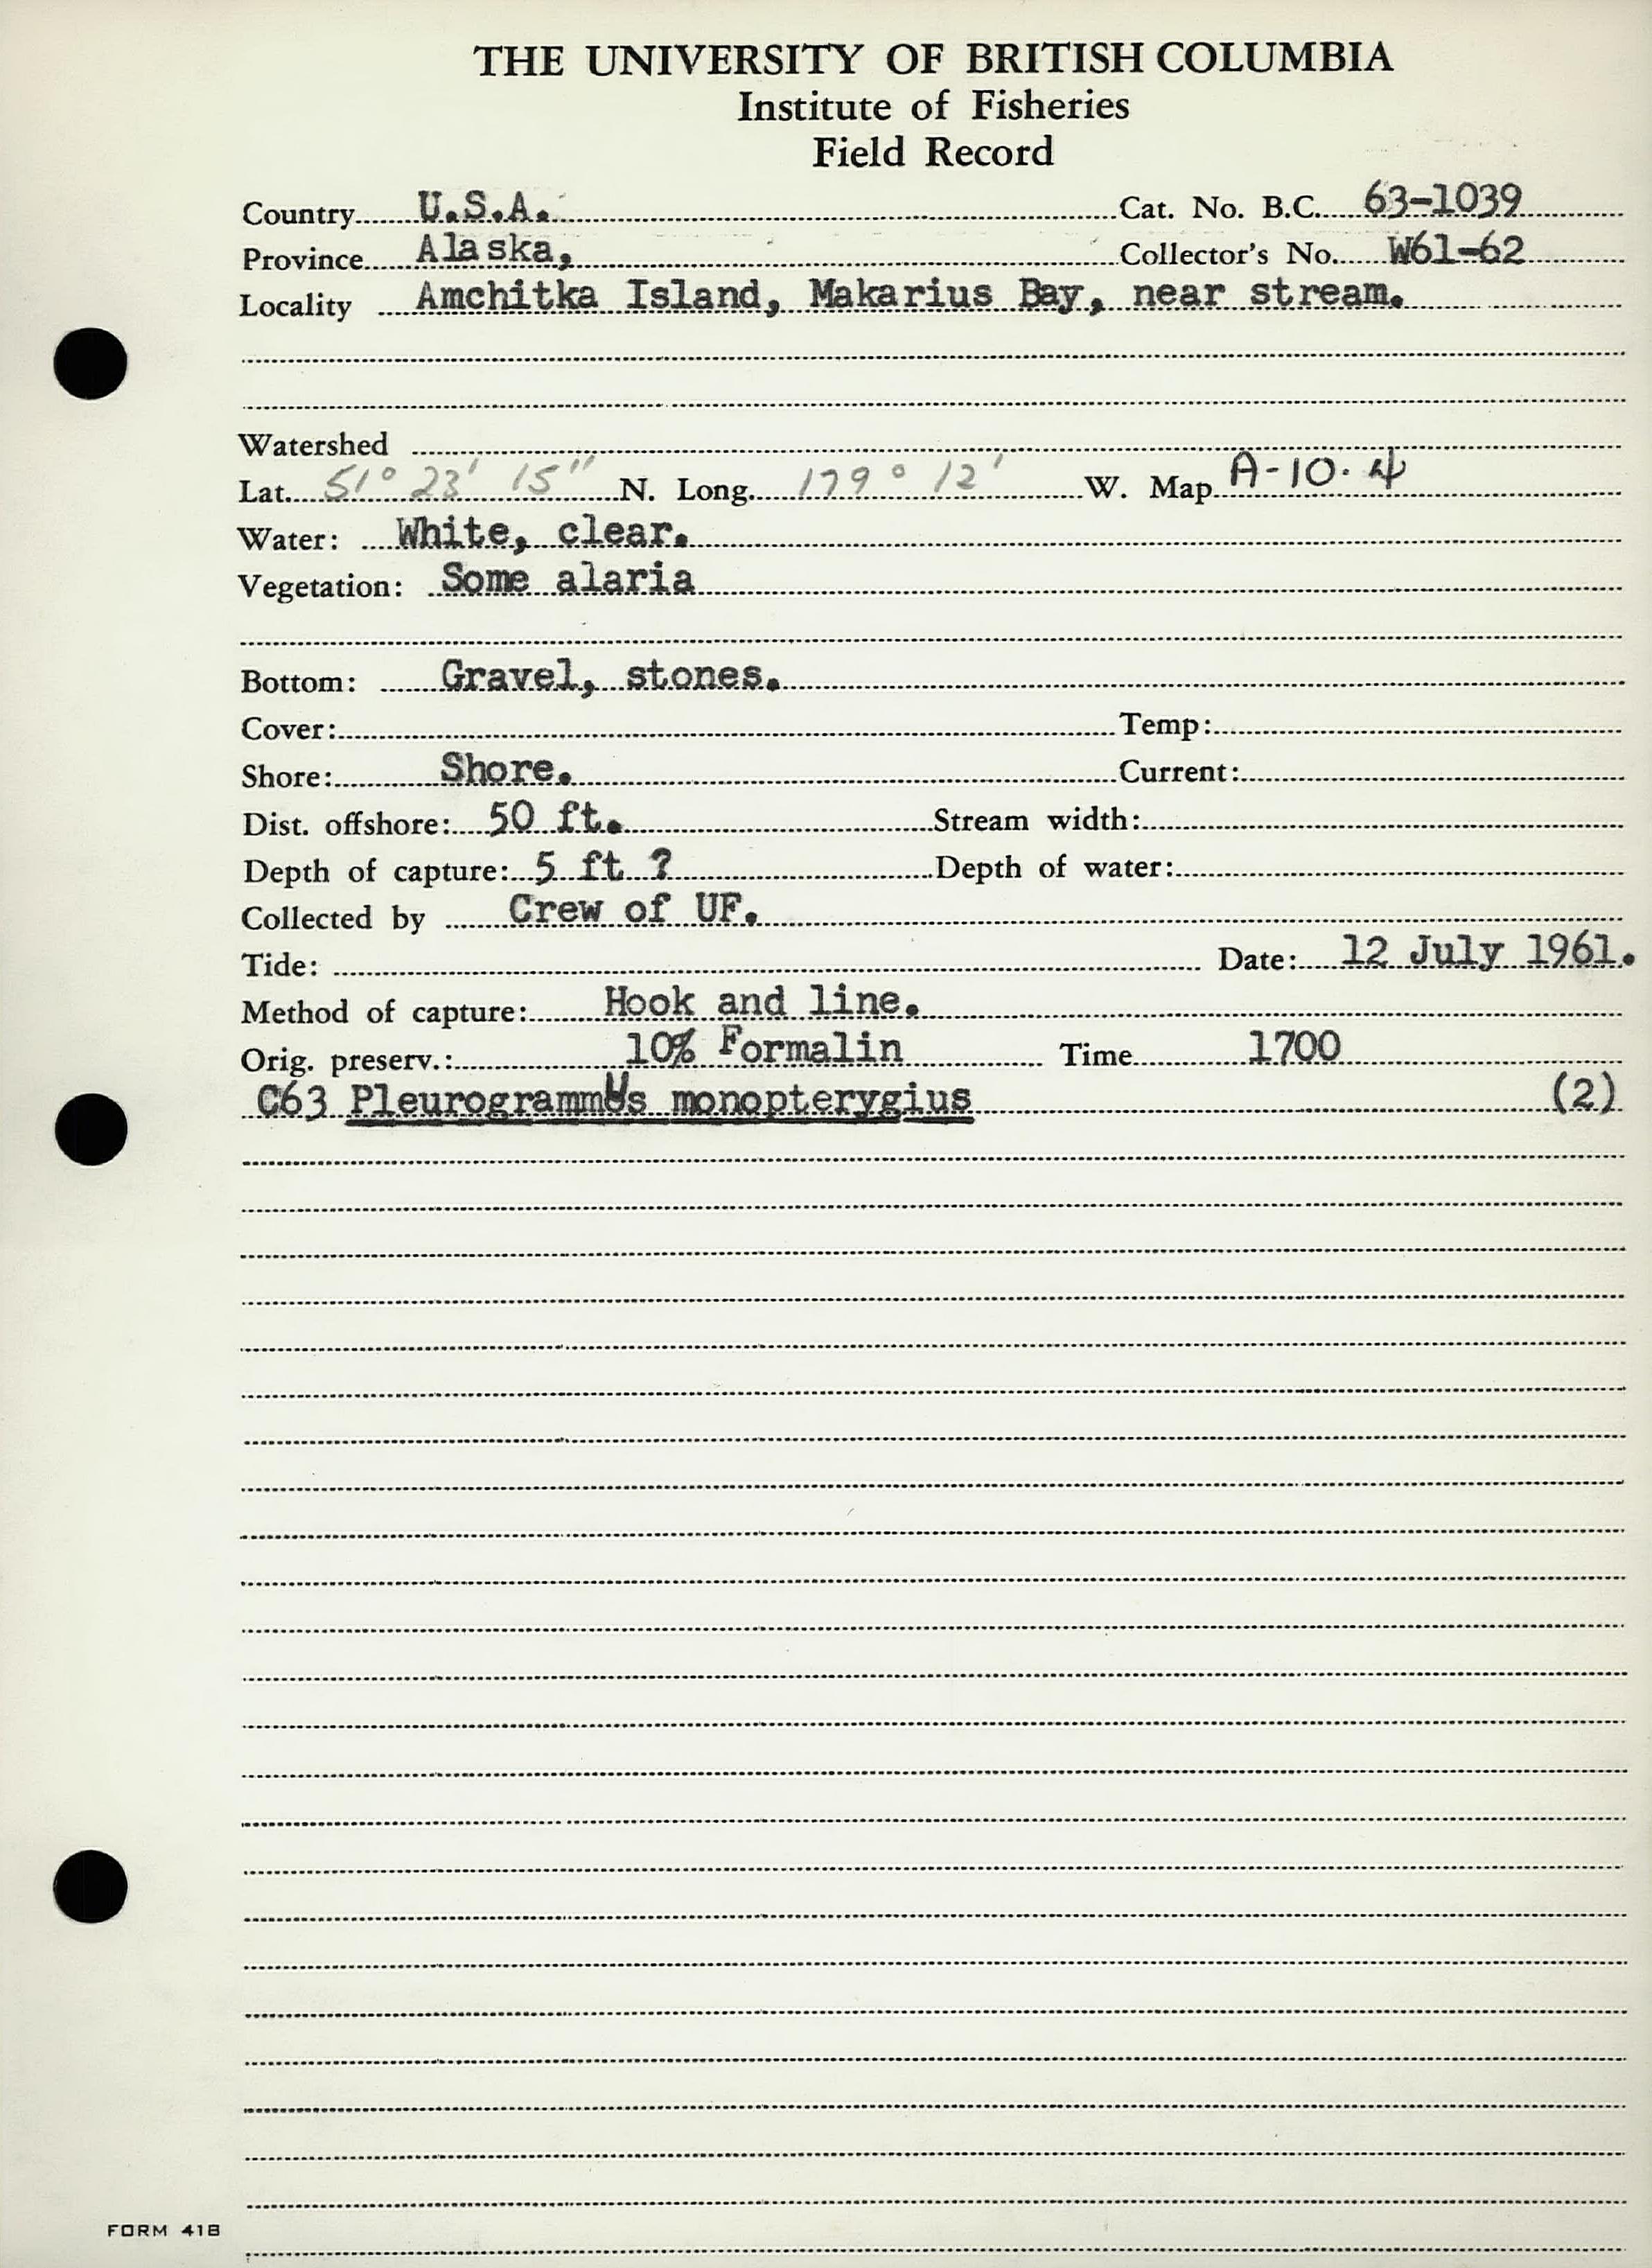 THE UNIVERSITY OF BRITISH COLUMBIA
Institute of Fisheries
Field Record
Country U.S.A. Cat. No. B.C. 63-1039
Province Alaska, Collector's No. W61-62
Locality Amchitka Island, Makarius Bay, near stream.
Watershed
Lat. 51° 23' 15" N. Long. 179° 12' W. Map A-10.4
Water: White, clear.
Vegetation: Some alaria
Bottom: Gravel, stones.
Cover: Temp:
Shore: Shore. Current:
Dist. offshore: 50 ft. Stream width:
Depth of capture: 5 ft ? Depth of water:
Collected by Crew of UF.
Tide: Date: 12 July 1961.
Method of capture: Hook and line.
Orig. preserv.: 10% Formalin Time 1700
C63 Pleurogrammus monopterygius (2)
FORM 41B